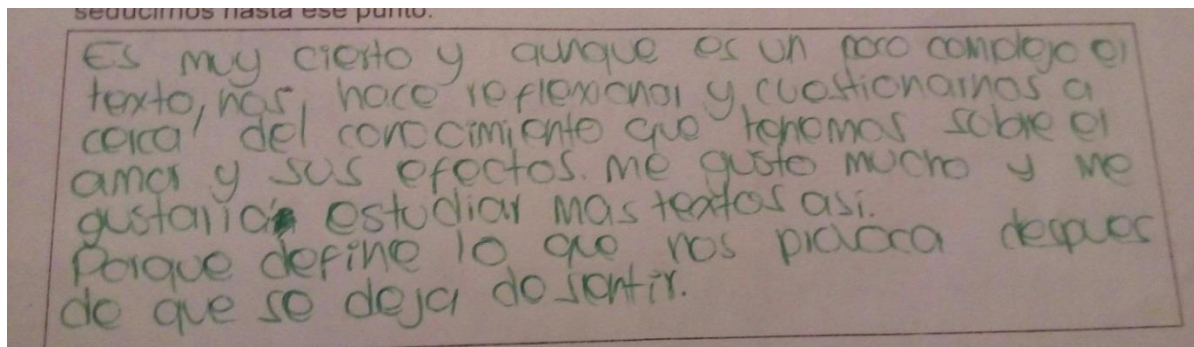 seducirnos hasta ese punto.
Es muy cierto y aunque es un poco complejo el
texto, nos, hace reflexionar y cuestionarnos a
cerca del conocimiento que tenemos sobre el
amor y sus efectos. Me gusto mucho y me
gustaria estudiar mas textos asi.
Porque define lo que nos provoca despues
de que se deja de sentir.